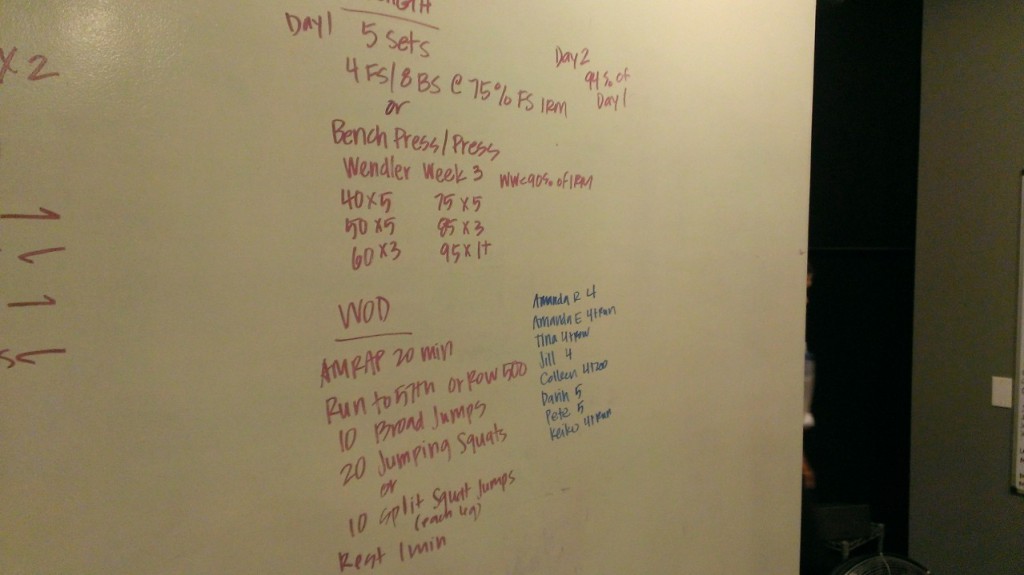 Day 1
5 Sets
4 FS/8 BS @ 75% FS 1RM
or
Bench Press/Press
Wendler Week 3 WW<90% of 1RM
40x5 75x5
50x5 85x3
60x3 95x1+
Day 2
94% of
Day 1
WOD
AMRAP 20 min
Run to 57th or Row 500
10 Broad Jumps
20 Jumping Squats
or
10 Split Squat Jumps
(each leg)
Rest 1 min
Amanda R 4
Amanda E 4+Run
Tina 4+row
Jill 4
Colleen 4+200
Darin 5
Pete 5
Keiko 4+Run
x 2